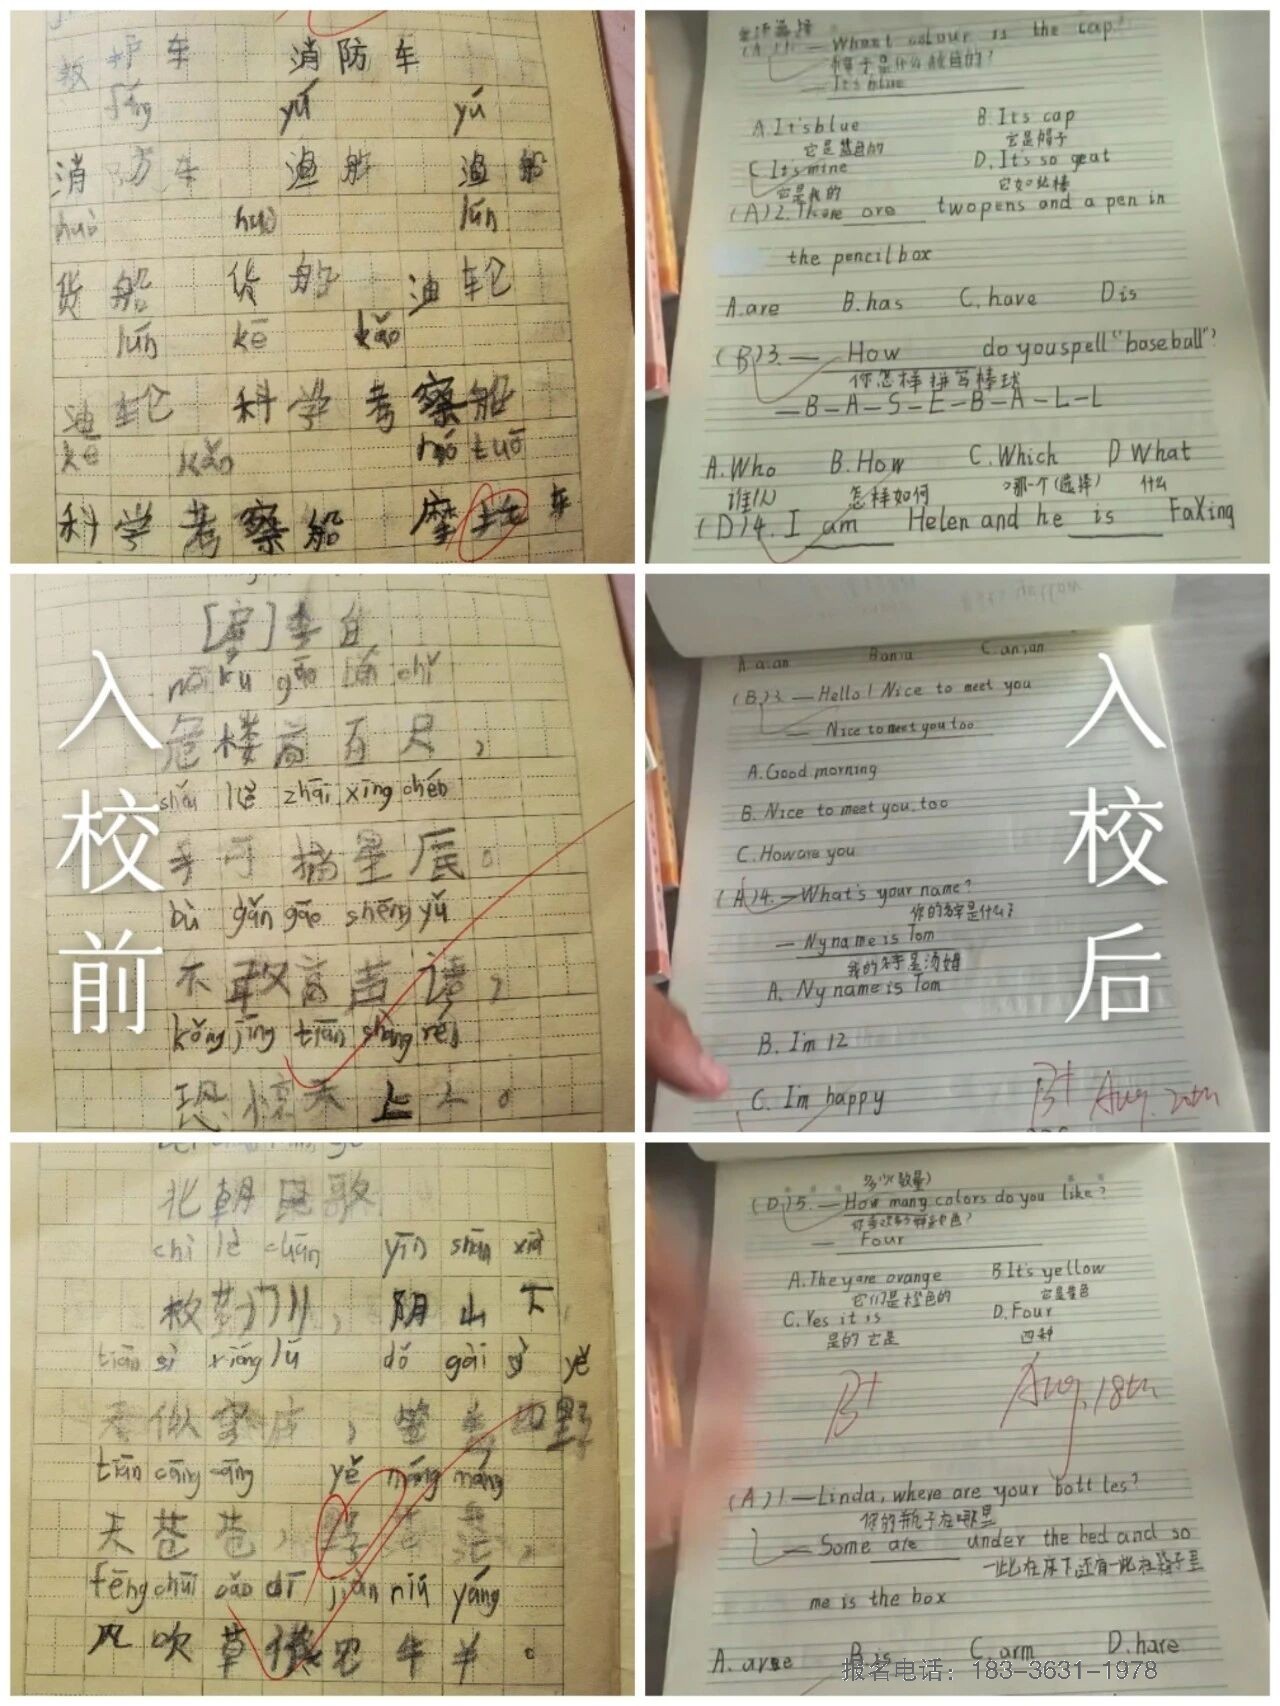 救护车 消防车
fáng yú yú
消方车 渔船 渔船
huò huò lún
货船 货船 油轮
lún kē kǎo
油轮 科学考察船
kē kǎo mó tuō
科学考察船 摩托车
入校前
[唐]李白
kǔ gāo bǎi chǐ
危楼高百尺，
shǒu kě zhāi xīng chén
手可摘星辰。
bù gǎn gāo shēng yǔ
不敢高声语，
kǒng jīng tiān shàng rén
恐惊天上人。
北朝民歌
chì lè chuān yīn shān xià
敕勒川，阴山下
tiān sì lú gài sì yě
天似穹庐，笼盖四野
tiān cāng cāng yě máng máng
天苍苍，野茫茫，
fēng chuī cǎo dī jiàn niú yáng
风吹草低见牛羊。
(A)1.—What colour is the cap?
帽子是什么颜色的?
—It's blue
A.It's blue B.It's cap
它是蓝色的 它是帽子
C.It's mine D.It's so geat
它是我的 它如此棒
(A)2.There are twopens and a pen in
the pencil box
A.are B.has C.have D is
(B)3.— How do youspell "baseball"?
你怎样拼写棒球
—B-A-S-E-B-A-L-L
A.Who B.How C.Which D What
谁/人 怎样如何 哪一个(选择) 什么
(D)4.I am Helen and he is FaXing
入校后
A.a.an B an.a C.an,an
(B)3.—Hello! Nice to meet you
— Nice to meet you too
A.Good morning
B. Nice to meet you,too
C.How are you
(A)4.—What's your name?
你的名字是什么?
— Ny name is Tom
我的名字是汤姆
A. Ny name is Tom
B. I'm 12
C. I'm happy
B+ Aug. 20th
多少(数量)
(D)5.—How many colors do you like?
— Four
A.They are orange B.It's yellow
它们是橙色的 它是黄色
C.Yes it is D.Four
是的 它是 四种
B+ Aug, 18th
(A)1.—Linda, where are your bottles?
你的瓶子在哪里
— Some are under the bed and so
一些在床下,还有一些在箱子里
me is the box
A. are B.is C.arm D.hare
报名电话：183-3631-1978